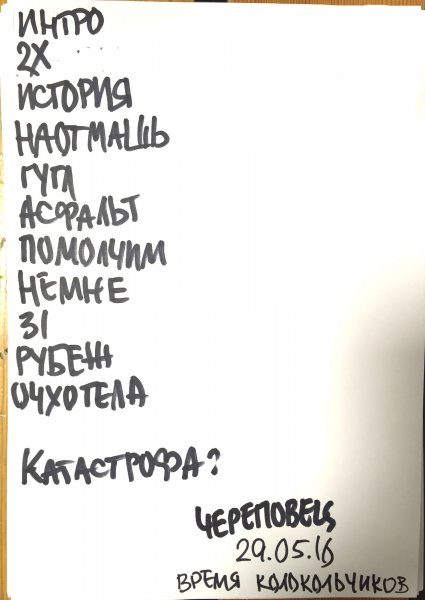 ИНТРО
2Х
ИСТОРИЯ
НАОТМАШЬ
ГУГЛ
АСФАЛЬТ
ПОМОЛЧИМ
НЕМНЕ
31
РУБЕЖ
ОЧХОТЕЛА
КАТАСТРОФА?
ЧЕРЕПОВЕЦ
29.05.16
ВРЕМЯ КОЛОКОЛЬЧИКОВ